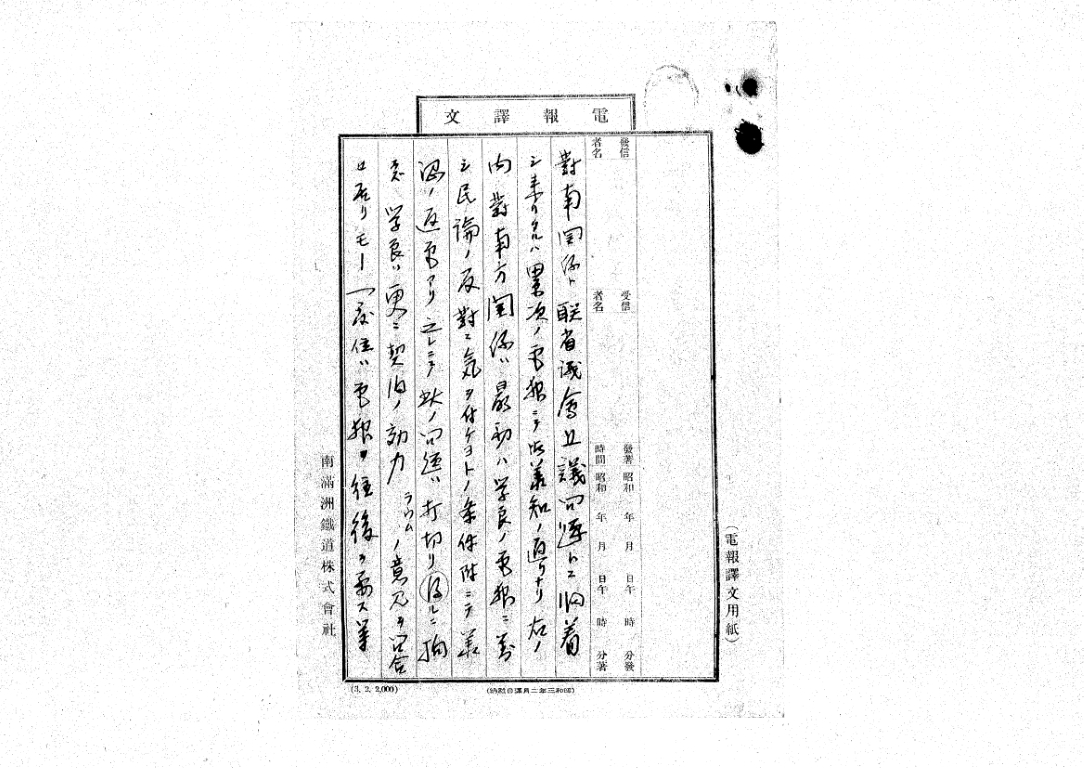 電報譯文
(電報譯文用紙)
發信者名 受信者名 發著時間 昭和 年 月 日午 時 分發
昭和 年 月 日午 時 分著
對南関係ト联省議會丘議問題トニ膠着
シ来リタルハ累次ノ電報ニテ御兼知ノ通リナリ右ノ
内對南方関係ハ最初ハ学良ノ電報ニ対
シ民論ノ反對ニ気ヲ付ケヨトノ条件附ニテ兼
認ノ返電アリ之レニテ此ノ問題ハ打切リ得ルニ拘
ラズ学良ハ更ニ契約ノ効力ノ意見ヲ問合
ロ居リモ一度位ハ電報ヲ往復ヲ要ス
南滿洲鐵道株式會社
(3. 2. 2,000)